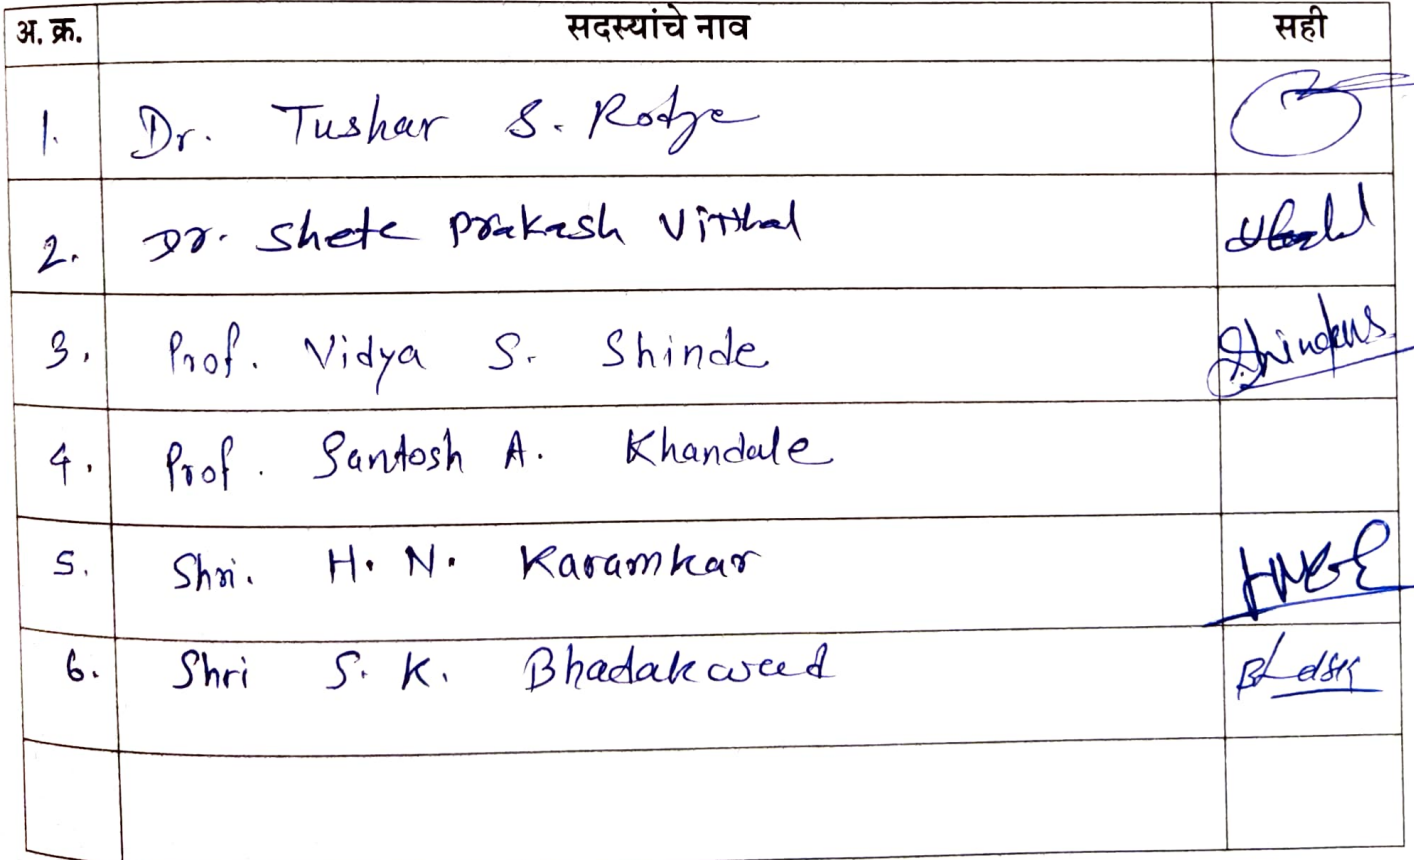 अ. क्र. सदस्यांचे नाव सही
1. Dr. Tushar S. Rodge
2. Dr. Shete Prakash Vitthal
3. Prof. Vidya S. Shinde
4. Prof. Santosh A. Khandale
5. Shri. H. N. Karamkar
6. Shri S. K. Bhadakwad